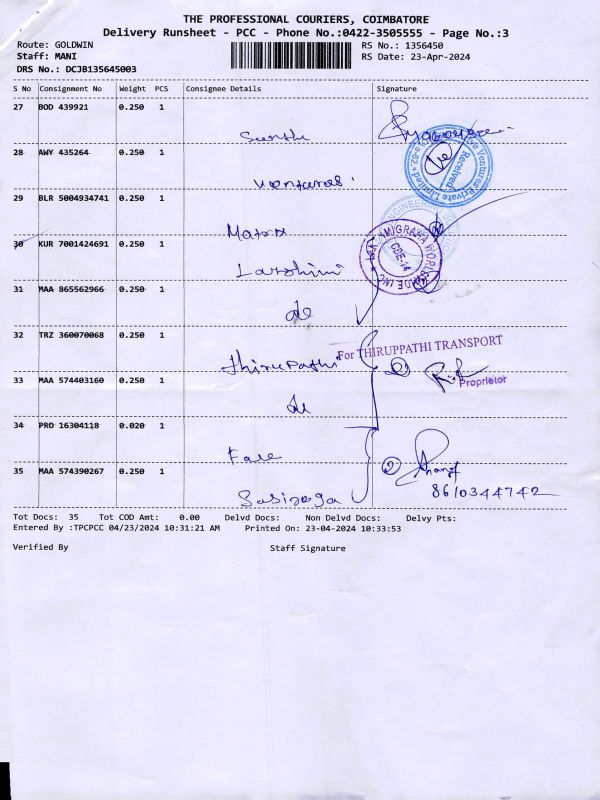 THE PROFESSIONAL COURIERS, COIMBATORE
Delivery Runsheet - PCC - Phone No.:0422-3505555 - Page No.:3
Route: GOLDWIN RS No.: 1356450
Staff: MANI RS Date: 23-Apr-2024
DRS No.: DCJB135645003
S No Consignment No Weight PCS Consignee Details Signature
27 BOD 439921 0.250 1
28 AWY 435264 0.250 1
Ventures Private Limited
Received
29 BLR 5004934741 0.250 1
Matrix
ENGINEERING
30 KUR 7001424691 0.250 1
Lakshmi
CBE-14
31 MAA 865562966 0.250 1
do
32 TRZ 360070068 0.250 1
thirupathi
For THIRUPPATHI TRANSPORT
Proprietor
33 MAA 574403160 0.250 1
do
34 PRO 16304118 0.020 1
35 MAA 574390267 0.250 1
2
8610344742
Tot Docs: 35 Tot COD Amt: 0.00 Delvd Docs: Non Delvd Docs: Delvy Pts:
Entered By :TPCPCC 04/23/2024 10:31:21 AM Printed On: 23-04-2024 10:33:53
Verified By Staff Signature